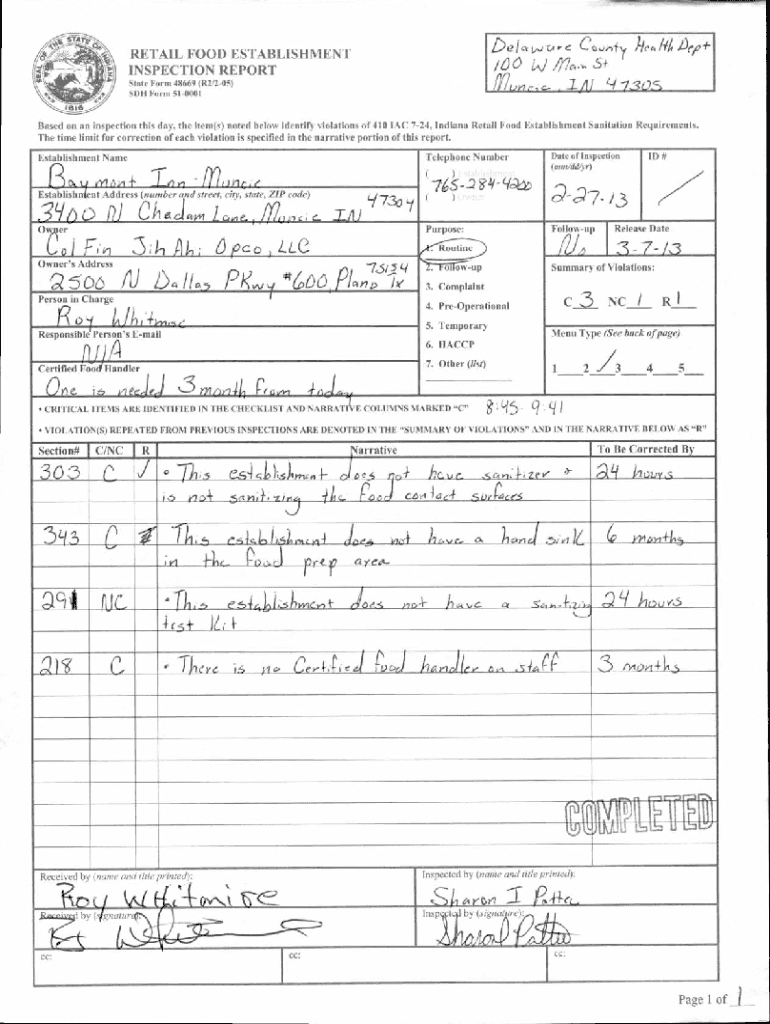 SEAL OF THE STATE OF INDIANA
1816
RETAIL FOOD ESTABLISHMENT
INSPECTION REPORT
State Form 48669 (R2/2-05)
SDH Form 51-0001
Delaware County Health Dept
100 W Main St
Muncie, IN 47305
Based on an inspection this day, the item(s) noted below identify violations of 410 IAC 7-24, Indiana Retail Food Establishment Sanitation Requirements.
The time limit for correction of each violation is specified in the narrative portion of this report.
Establishment Name
Baymont Inn - Muncie
Telephone Number
( ) Establishment
765-284-4200
( ) Owner
Date of Inspection
(mm/dd/yr)
2-27-13
ID #
Establishment Address (number and street, city, state, ZIP code)
47304
3400 N Chadam Lane, Muncie IN
Owner
Col Fin Jih Ahi Opco, LLC
Purpose:
1. Routine
2. Follow-up
3. Complaint
4. Pre-Operational
5. Temporary
6. HACCP
7. Other (list)
Follow-up
No
Release Date
3-7-13
Owner's Address
75134
2500 N Dallas PKwy #600, Plano Tx
Summary of Violations:
C 3 NC 1 R 1
Person in Charge
Roy Whitmire
Responsible Person's E-mail
N/A
Menu Type (See back of page)
1 2 / 3 4 5
Certified Food Handler
One is needed 3 month from today
• CRITICAL ITEMS ARE IDENTIFIED IN THE CHECKLIST AND NARRATIVE COLUMNS MARKED "C"
8:45-9:41
• VIOLATION(S) REPEATED FROM PREVIOUS INSPECTIONS ARE DENOTED IN THE "SUMMARY OF VIOLATIONS" AND IN THE NARRATIVE BELOW AS "R"
Section# C/NC R Narrative To Be Corrected By
303 C ✓ • This establishment does not have sanitizer + 24 hours
is not sanitizing the food contact surfaces
343 C This establishment does not have a hand sink 6 months
in the food prep area
291 NC • This establishment does not have a sanitizing 24 hours
test Kit
218 C • There is no Certified food handler on staff 3 months
COMPLETED
Received by (name and title printed):
Roy WHitmire
Inspected by (name and title printed):
Sharon I Pattee
Received by (signature):
Inspected by (signature):
Sharon Pattee
cc:
cc:
cc:
Page 1 of 1